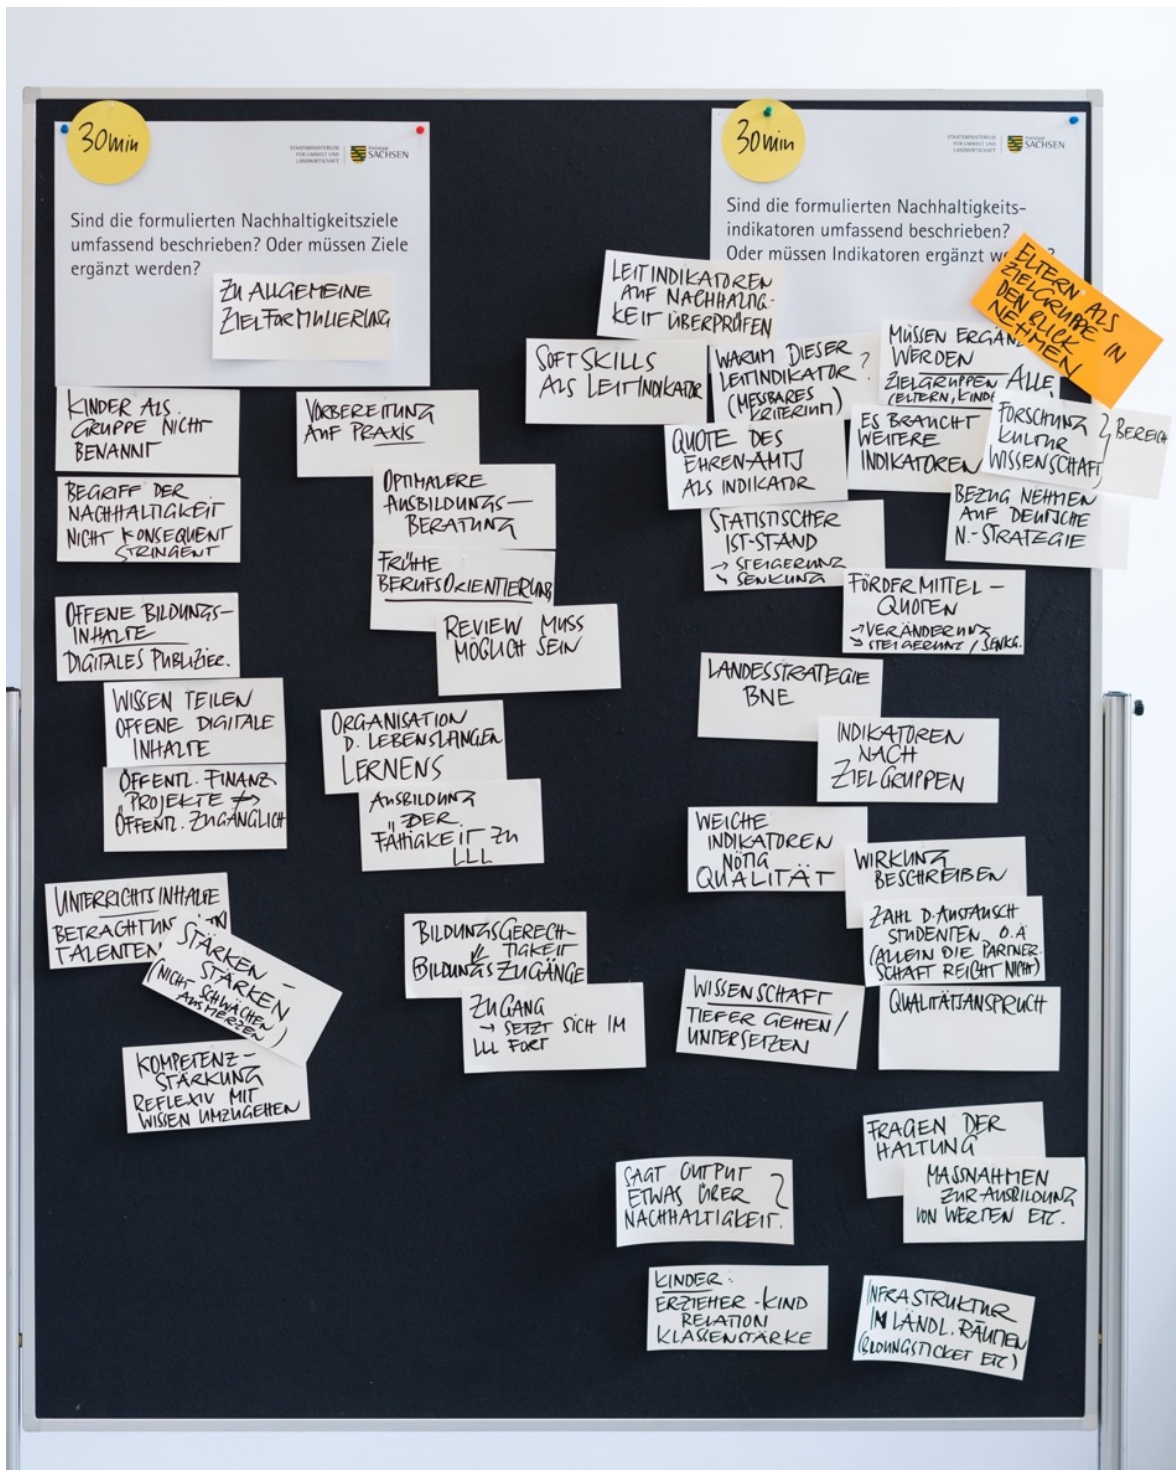 30min
STAATSMINISTERIUM
FÜR UMWELT UND
LANDWIRTSCHAFT
Freistaat
SACHSEN
Sind die formulierten Nachhaltigkeitsziele
umfassend beschrieben? Oder müssen Ziele
ergänzt werden?
ZU ALLGEMEINE
ZIELFORMULIERUNG
KINDER ALS
GRUPPE NICHT
BENANNT
BEGRIFF DER
NACHHALTIGKEIT
NICHT KONSEQUENT
STRINGENT
OFFENE BILDUNGS-
INHALTE
DIGITALES PUBLIZIER.
WISSEN TEILEN
OFFENE DIGITALE
INHALTE
ÖFFENTL. FINANZ
PROJEKTE
ÖFFENTL. ZUGÄNGLICH
UNTERRICHTSINHALTE
BETRACHTUNG
TALENTEN
STÄRKEN-
STÄRKEN
(NICHT SCHWÄCHEN
AUSMERZEN)
KOMPETENZ-
STÄRKUNG
REFLEXIV MIT
WISSEN UMZUGEHEN
VORBEREITUNG
AUF PRAXIS
OPTIMALERE
AUSBILDUNGS-
BERATUNG
FRÜHE
BERUFSORIENTIERUNG
REVIEW MUSS
MÖGLICH SEIN
ORGANISATION
D. LEBENSLANGEN
LERNENS
AUSBILDUNG
DER
FÄHIGKEIT ZU
LLL
BILDUNGSGERECH-
TIGKEIT
BILDUNGSZUGÄNGE
ZUGANG
→ SETZT SICH IM
LLL FORT
30min
STAATSMINISTERIUM
FÜR UMWELT UND
LANDWIRTSCHAFT
Freistaat
SACHSEN
Sind die formulierten Nachhaltigkeits-
indikatoren umfassend beschrieben?
Oder müssen Indikatoren ergänzt we
?
ELTERN ALS
ZIELGRUPPE IN
DEN BLICK
NEHMEN
LEITINDIKATOREN
AUF NACHHALTIG-
KEIT ÜBERPRÜFEN
SOFT SKILLS
ALS LEITINDIKATOR
WARUM DIESER
LEITINDIKATOR ?
(MESSBARES
KRITERIUM)
MÜSSEN ERGÄN
WERDEN
ZIELGRUPPEN ALLE
(ELTERN, KINDE
QUOTE DES
EHRENAMTS
ALS INDIKATOR
ES BRAUCHT
WEITERE
INDIKATOREN
FORSCHUNG
KULTUR } BEREICH
WISSENSCHAFT
BEZUG NEHMEN
AUF DEUTSCHE
N.-STRATEGIE
STATISTISCHER
IST-STAND
→ STEIGERUNG
↘ SENKUNG
FÖRDERMITTEL-
QUOTEN
→ VERÄNDERUNG
→ STEIGERUNG / SENKG.
LANDESSTRATEGIE
BNE
INDIKATOREN
NACH
ZIELGRUPPEN
WEICHE
INDIKATOREN
NÖTIG
QUALITÄT
WIRKUNG
BESCHREIBEN
ZAHL D. AUSTAUSCH
STUDENTEN O.Ä
(ALLEIN DIE PARTNER-
SCHAFT REICHT NICHT)
WISSENSCHAFT
TIEFER GEHEN/
UNTERSETZEN
QUALITÄTSANSPRUCH
FRAGEN DER
HALTUNG
MASSNAHMEN
ZUR AUSBILDUNG
VON WERTEN ETC.
SAGT OUTPUT
ETWAS ÜBER ?
NACHHALTIGKEIT.
KINDER:
ERZIEHER-KIND
RELATION
KLASSENSTÄRKE
INFRASTRUKTUR
IN LÄNDL. RÄUMEN
(BILDUNGSTICKET ETC)